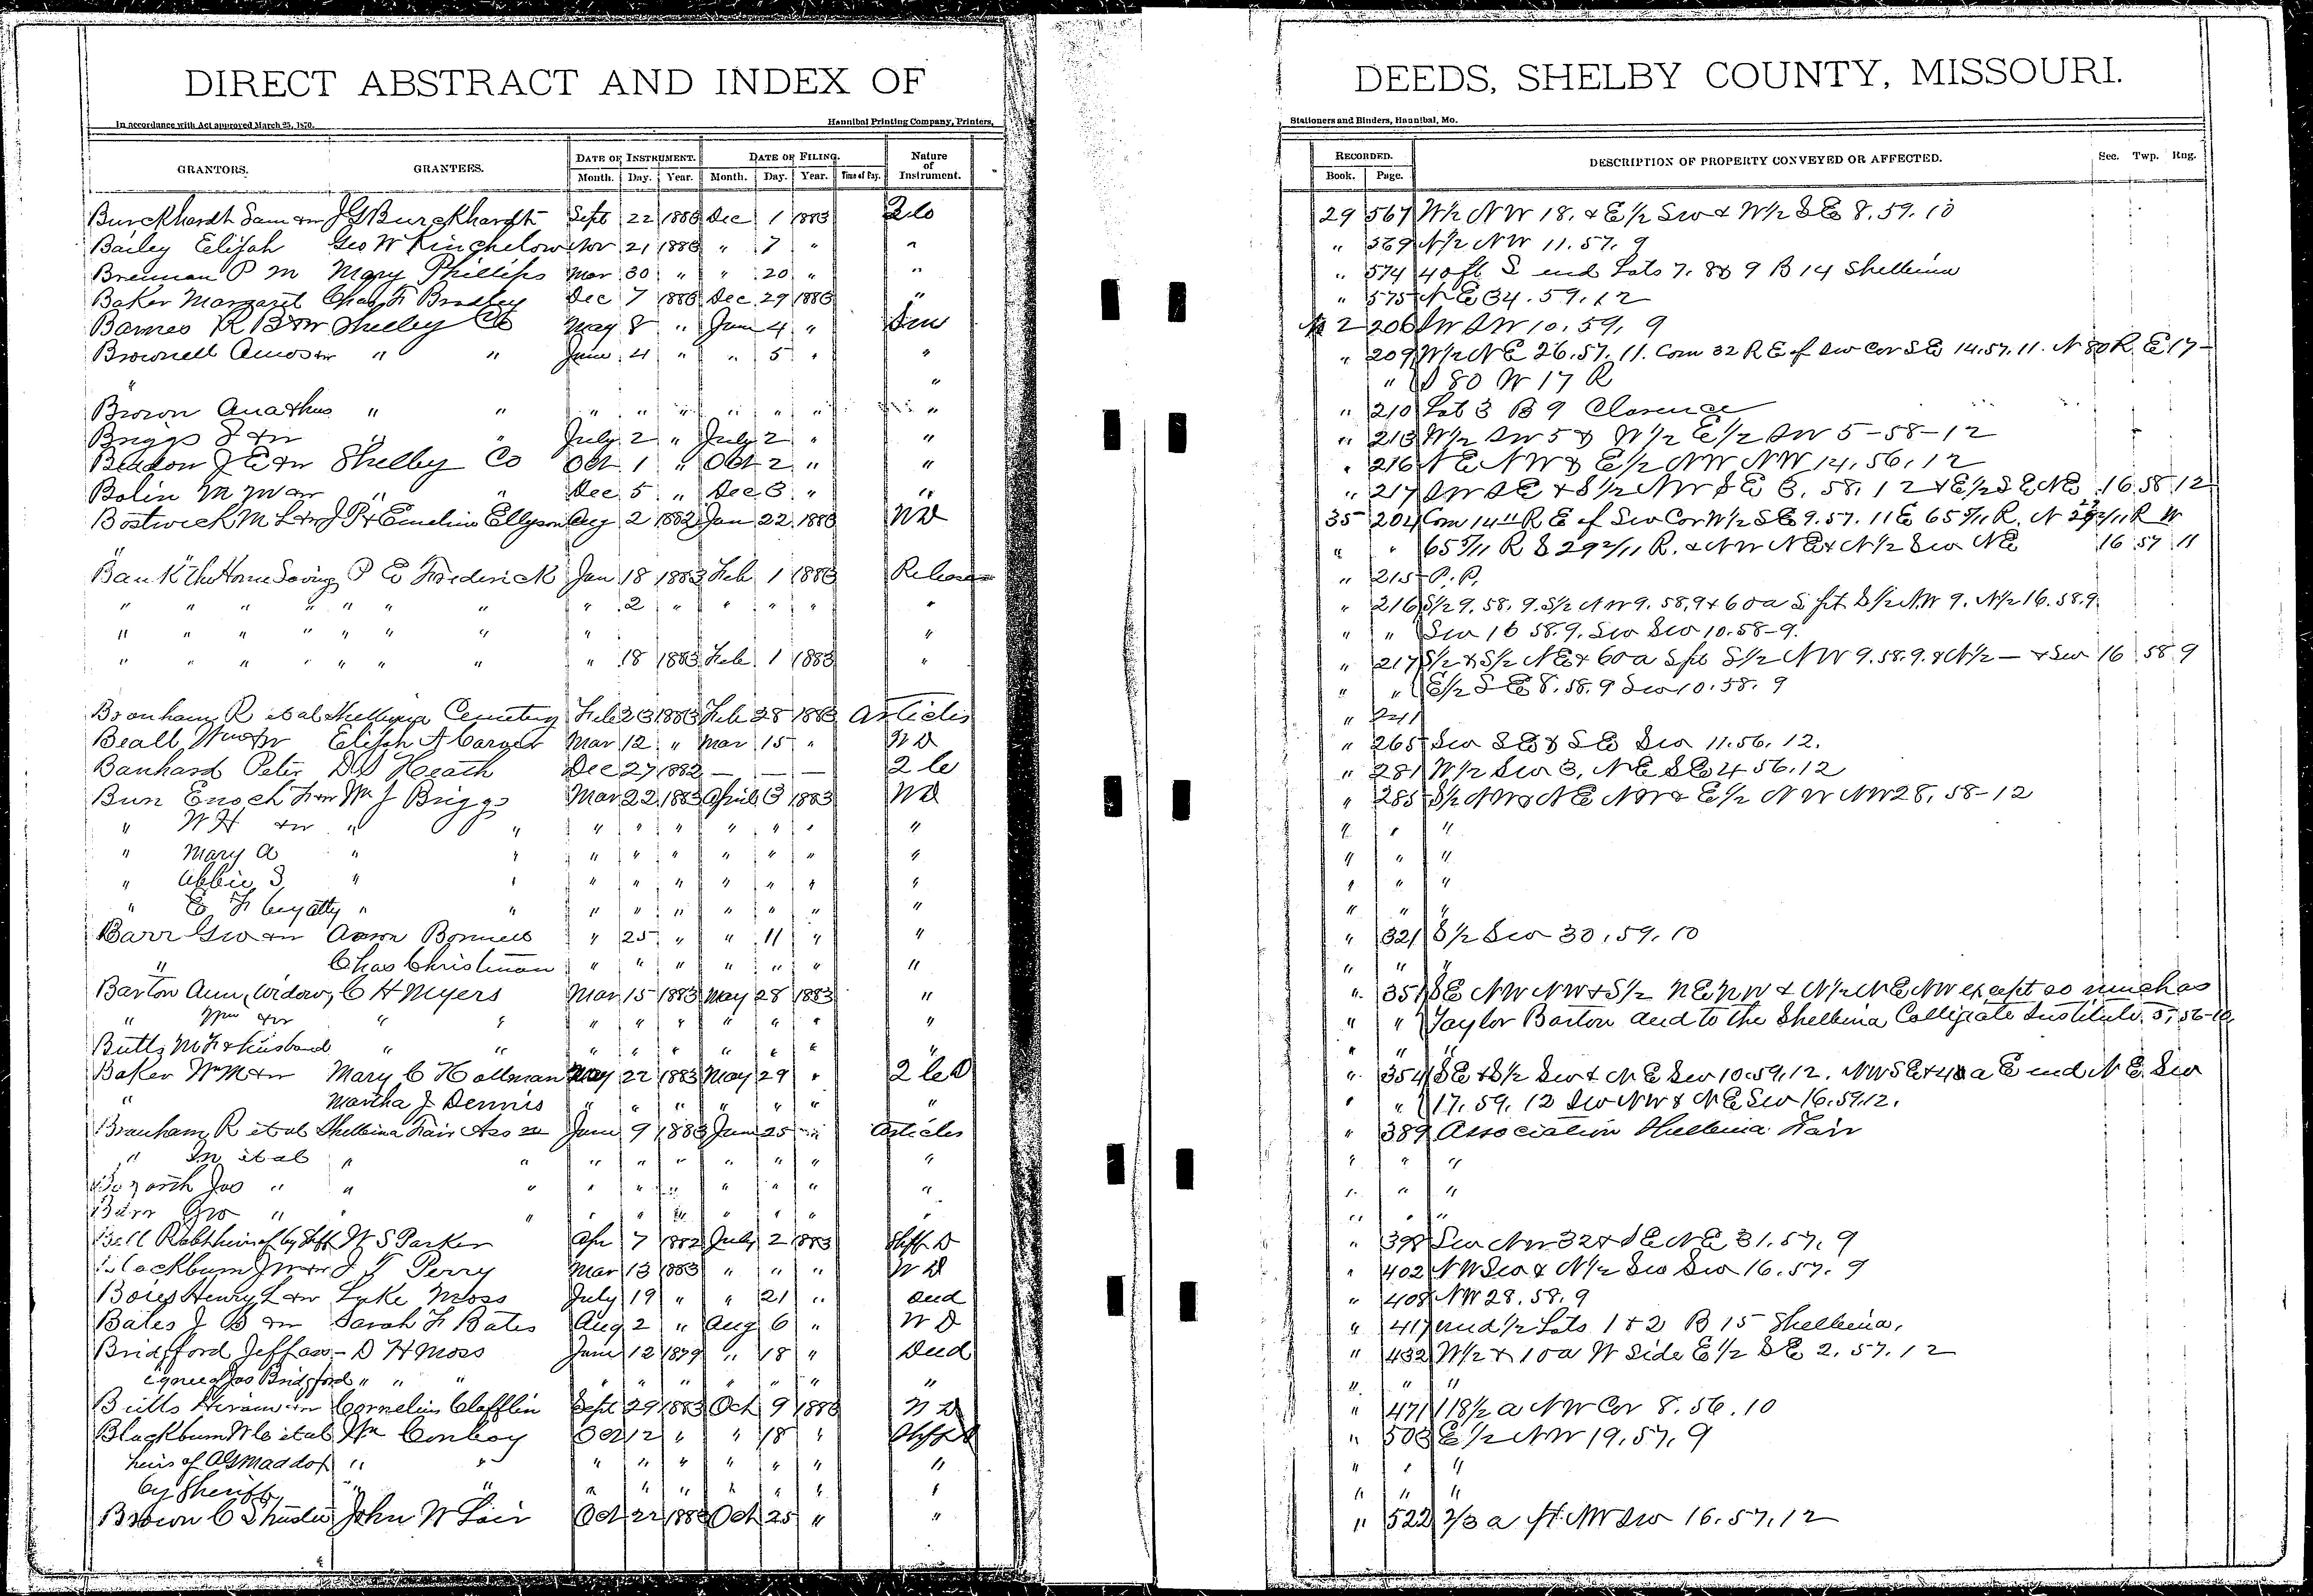 DIRECT ABSTRACT AND INDEX OF DEEDS, SHELBY COUNTY, MISSOURI.
In accordance with Act approved March 25, 1870. Hannibal Printing Company, Printers, Stationers and Binders, Hannibal, Mo.
GRANTORS. GRANTEES. DATE OF INSTRUMENT. DATE OF FILING. Nature of Instrument. RECORDED. DESCRIPTION OF PROPERTY CONVEYED OR AFFECTED. Sec. Twp. Rng.
Month. Day. Year. Month. Day. Year. Time of Day. Book. Page.
Burckhardt Sam &w J G Burckhardt Sept 22 1883 Dec 1 1883 29 567 W½ NW 18. & E½ SW & W½ SE 8. 59. 10
Bailey Elijah Geo W Kinchelow Nov 21 1883 " 7 " " " 569 N½ NW 11. 57. 9
Brennan P M Mary Phillips Mar 30 " " 20 " " " 574 40 ft S end Lots 7. 8 & 9 B 14 Shelbina
Baker Margaret Chas F Bradley Dec 7 1883 Dec 29 1883 " " 575 NE 34. 59. 12
Barnes R B &w Shelby Co May 8 " June 4 " 2 206 SW SW 10. 59. 9
Brownell Amos &w " " June 4 " " 5 " " " 209 W½ NE 26. 57. 11. Com 32 R E of SW Cor SE 14. 57. 11. N 80 R. E 17-
" " " S 80 W 17 R
Brown " " " " " " " " " " 210 Lot 3 B 9 Clarence
Briggs S &w " " July 2 " July 2 " " " 213 W½ SW 5 & W½ E½ SW 5-58-12
J E &w Shelby Co Oct 1 " Oct 2 " " " 216 NE NW & E½ NW NW 14. 56. 12
Bolin M M &w " " Dec 5 " Dec 3 " " " 217 SW SE & S½ NW SE 3. 58. 12 & E½ SE NE 16 58 12
Bostwick M L &w J P & Emeline Ellyson Aug 2 1882 Jan 22 1883 WD 35 204 Com 14 R E of SW Cor W½ SE 9. 57. 11 E 65 5/11 R. N 29 2/11 R W
" " " 65 5/11 R S 29 2/11 R. & NW NE & N½ SW NE 16 57 11
Bank The Home Savings P E Frederick Jan 18 1883 Feb 1 1883 Release " 215 P. P.
" " " " " " " " 2 " " " " " " 216 S½ 9. 58. 9. S½ NW 9. 58. 9 & 60 a S pt S½ NW 9. N½ 16. 58. 9
" " " " " " " " " " " SW 16 58. 9. SW SW 10. 58-9.
" " " " " " " " 18 1883 Feb 1 1883 " " 217 S½ & S½ NE & 60 a S pt S½ NW 9. 58. 9. & N½ — & SW 16 58 9
" " E½ SE 8. 58. 9 SW 10. 58. 9
Branham R et al Shelbina Cemetery Feb 23 1883 Feb 28 1883 Articles " 241
Beall Wm &w Elijah A Carver Mar 12 " Mar 15 " WD " 265 SW SE & SE SW 11. 56. 12.
Banhard Peter D S Heath Dec 27 1882 — — — " 281 W½ SW 3, NE SE 4 56. 12
Burr Enoch F &w Wm J Briggs Mar 22 1883 April 3 1883 WD " 285 S½ NW & NE NW & E½ NW NW 28. 58-12
" W H &w " " " " " " " " " " " "
" Mary A " " " " " " " " " " " "
" Abbie S " " " " " " " " " " " "
" E F by atty " " " " " " " " " " " "
Barr Geo &w Aaron Bonnell " 25 " " 11 " " " 321 S½ SW 30. 59. 10
" Chas Christman " " " " " " " " " "
Barton Ann, widow, C H Myers Mar 15 1883 May 28 1883 " " 351 SE NW NW & S½ NE NW & N½ NE NW except so much as
" Wm &w " " " " " " " " " " " Taylor Barton deed to the Shelbina Collegiate Institute 5. 56-10
Butts M F & husband " " " " " " " " " " " "
Baker Wm M &w Mary C Hollman May 22 1883 May 29 " " 354 SE & S½ SW & NE SW 10. 59. 12. NW SE & a E end NE SW
" Martha J Dennis " " " " " " " " " 17. 59. 12 SW NW & NE SW 16. 59. 12.
Branham R et al Shelbina Fair Ass'n June 9 1883 June 25 " Articles " 389 Association Shelbina Fair
" et al " " " " " " " " " " " "
Bozarth Jas " " " " " " " " " " " " "
Barr Geo " " " " " " " " " " " " "
Bell Robt heirs of by Shff W S Parker Apr 7 1882 July 2 1883 Shff D " 398 SW NW 32 & SE NE 31. 57. 9
Blackburn J M &w J T Perry Mar 13 1883 " " " WD " 402 NW SW & N½ SW SW 16. 57. 9
Henry L &w Luke Moss July 19 " " 21 " Deed " 408 NW 28. 58. 9
Bates J B &w Sarah F Bates Aug 2 " Aug 6 " WD " 417 und ½ Lots 1 & 2 B 15 Shelbina.
Bridgford Jeff ass- D H Moss June 12 1879 " 18 " Deed " 432 W½ & 10 a W Side E½ SE 2. 57. 12
ignee of Jas Bridgford " " " " " " " " " " " " "
Butts Hiram &w Cornelius Clafflin Sept 29 1883 Oct 9 1883 WD " 471 118½ a NW Cor 8. 56. 10
Blackburn W C et al Wm Conboy Oct 12 " " 18 " Shff D " 503 E½ NW 19. 57. 9
heirs of A G Maddox " " " " " " " " " " " "
by Sheriff " " " " " " " " " " " "
Brown C S trustee John W Lair Oct 22 1883 Oct 25 " " " 522 2/3 a pt. NW SW 16. 57. 12